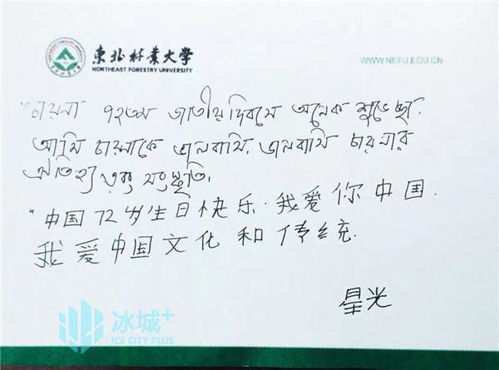 东北林业大学
NORTHEAST FORESTRY UNIVERSITY
WWW.NEFU.EDU.CN
"চায়না ৭২তম জাতীয় দিবসে অনেক শুভেচ্ছা.
আমি চায়নাকে ভালবাসি, ভালবাসি চায়নার
ঐতিহ্য এবং সংস্কৃতি.
"中国72岁生日快乐.我爱你中国.
我爱中国文化和传统.
星光
冰城+
ICE CITY PLUS